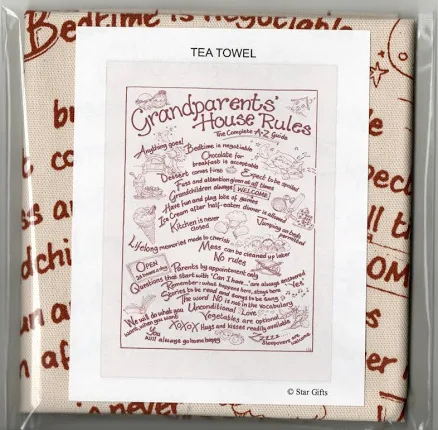 Bedtime is negotiable
TEA TOWEL
Grandparents'
House Rules
The Complete A-Z Guide
Anything goes!
Bedtime is negotiable
Chocolate for
breakfast is acceptable
Dessert comes first
Expect to be spoiled
Fuss and attention given at all times
Grandchildren always WELCOME
Have fun and play lots of games
Ice Cream after half-eaten dinner is allowed
Jumping on beds
permitted
Kitchen is never
closed
Lifelong memories made to cherish
Mess can be cleaned up later
No rules
OPEN
24 hours a day
Parents by appointment only
Questions that start with "Can I have..." are always answered
Yes
Remember: what happens here, stays here
Stories to be read and songs to be sung
The word NO is not in the vocabulary
Unconditional Love
Vegetables are optional
We will do what you
want, when you want
XOXOX Hugs and kisses readily available
You
will always go home happy
Zzzzz
Sleepovers are
welcome
© Star Gifts
is never